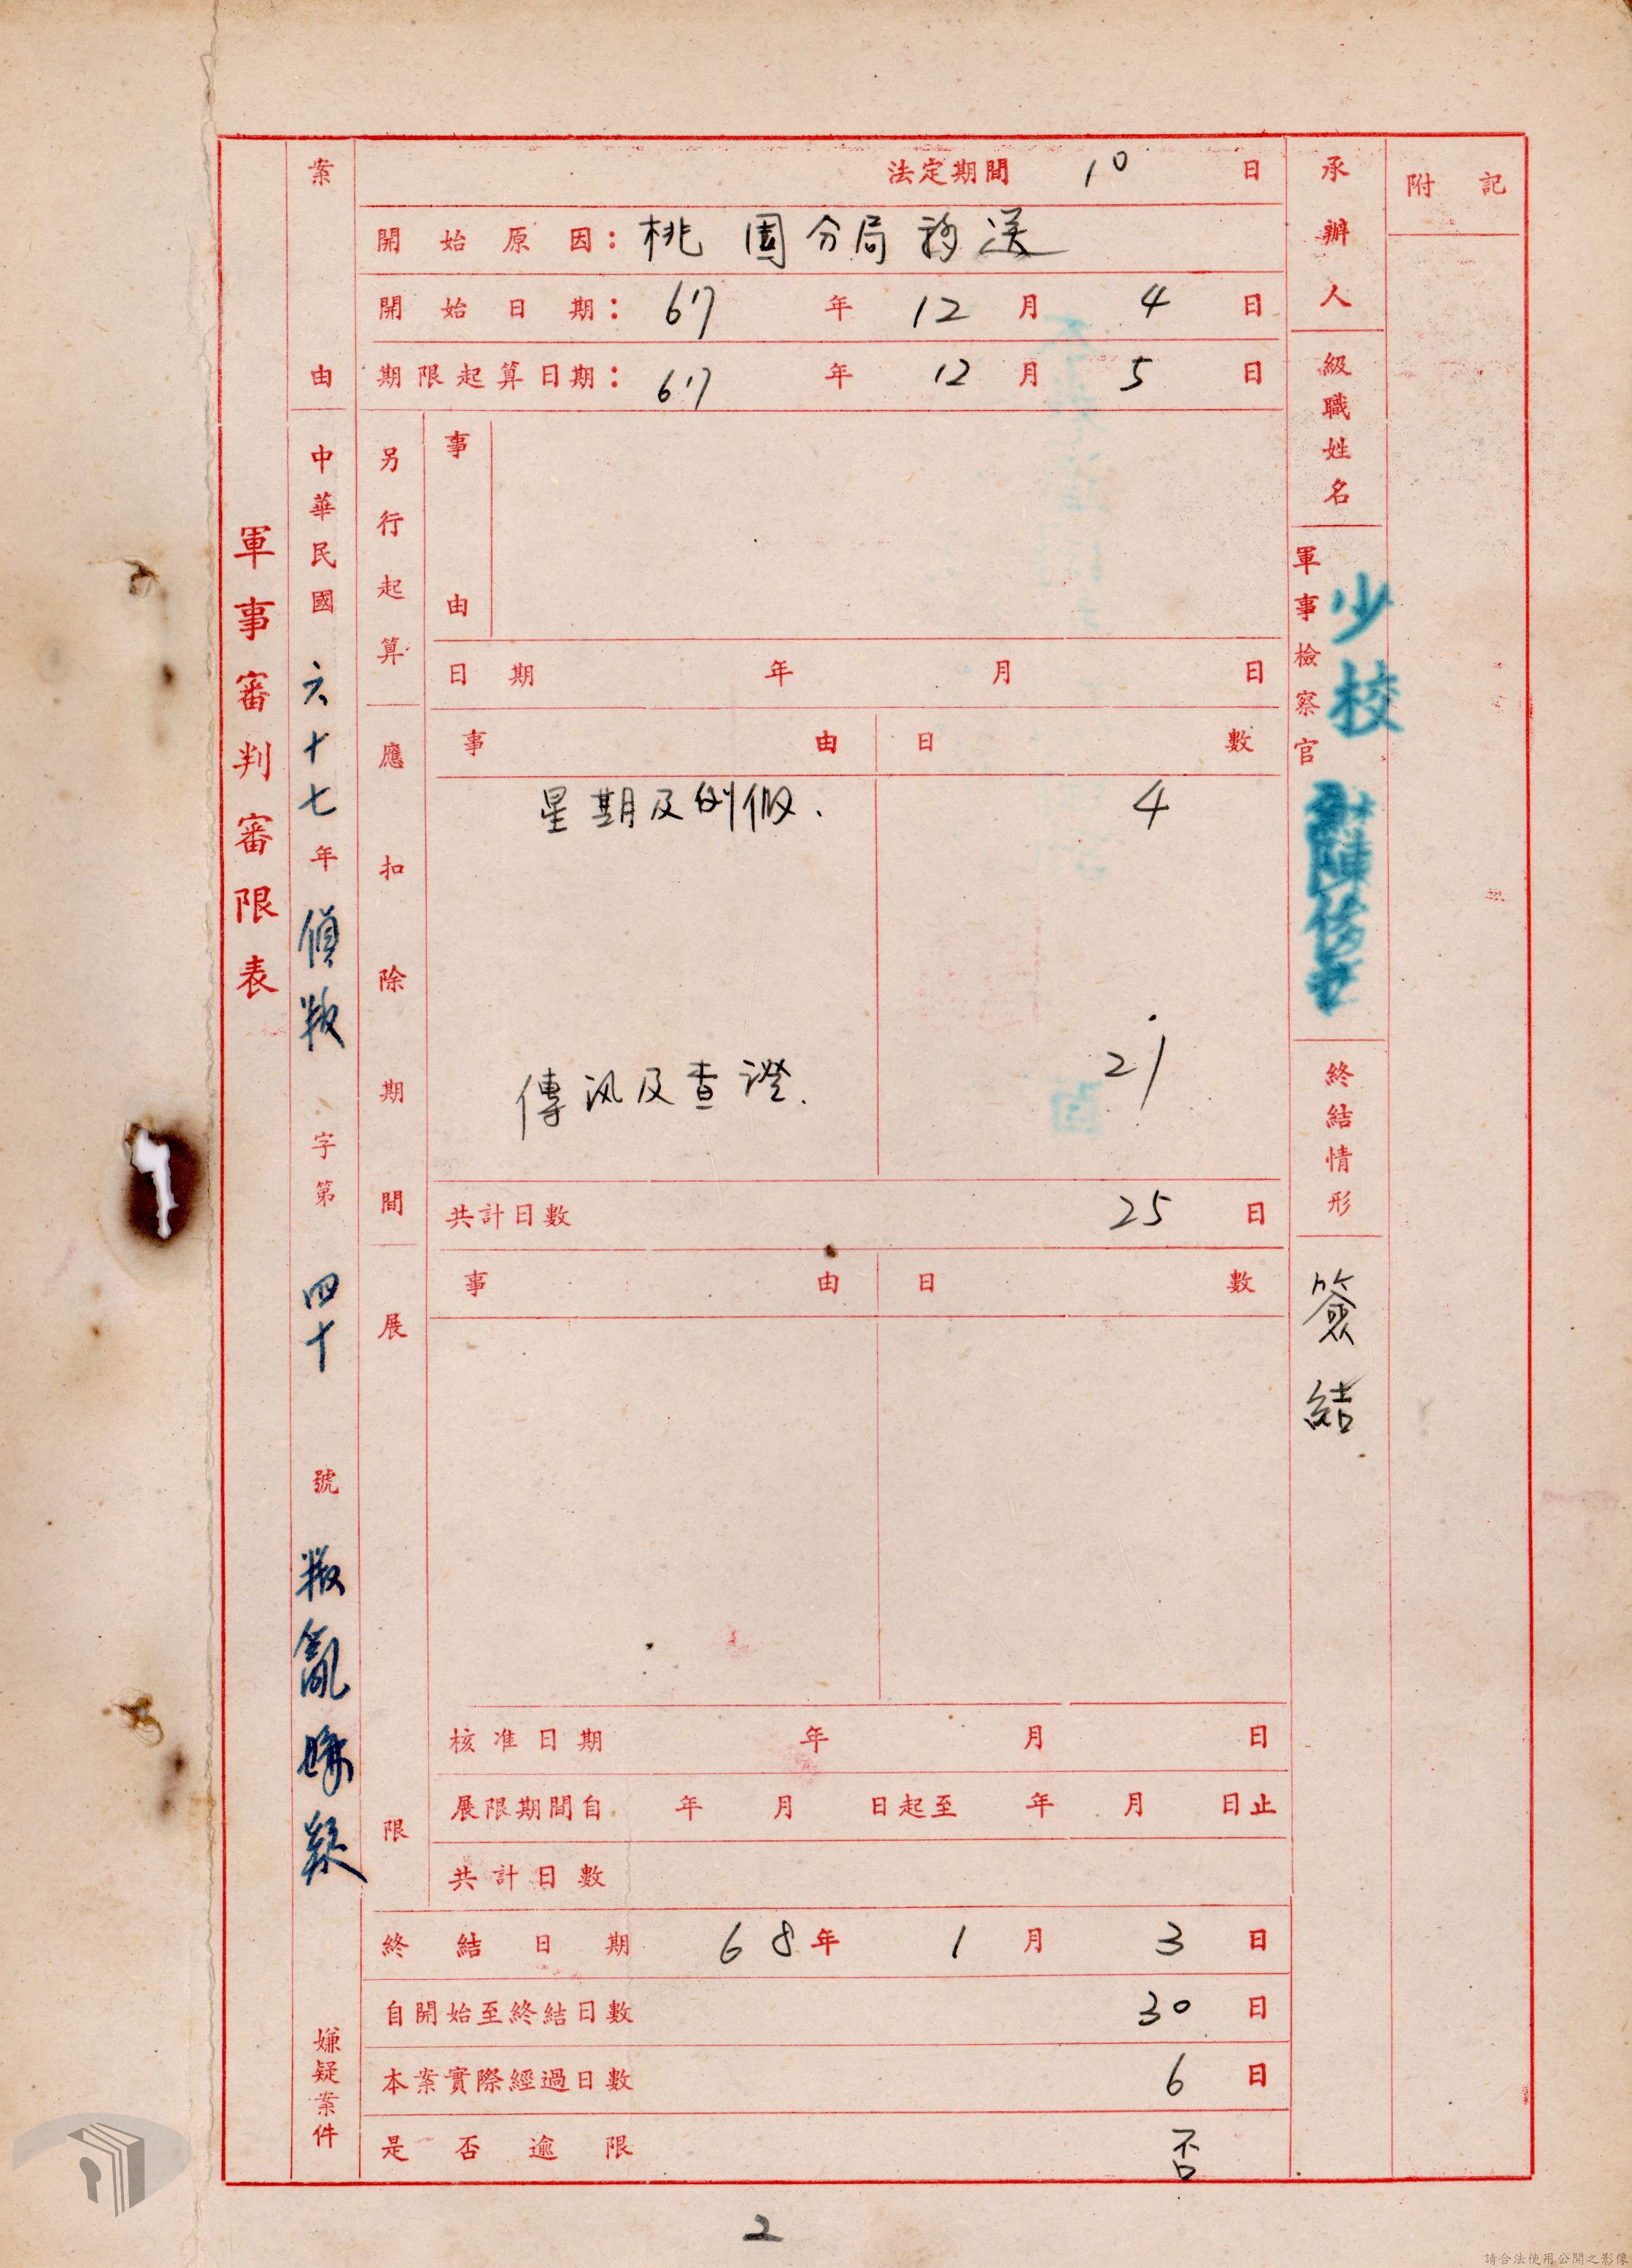 軍事審判審限表
案由
中華民國六十七年偵叛字第四十號叛亂嫌疑嫌疑案件
法定期間 10 日
開始原因：桃園分局移送
開始日期：67年12月4日
期限起算日期：67年12月5日
另行起算
事由
日期 年 月 日
應扣除期間
事由 日數
星期及例假. 4
傳訊及查證. 21
共計日數 25 日
展限
事由 日數
核准日期 年 月 日
展限期間自 年 月 日起至 年 月 日止
共計日數
終結日期 68年1月3日
自開始至終結日數 30日
本案實際經過日數 6日
是否逾限 否
承辦人
級職姓名
軍事檢察官
少校
終結情形
簽結
附記
2
請合法使用公開之影像